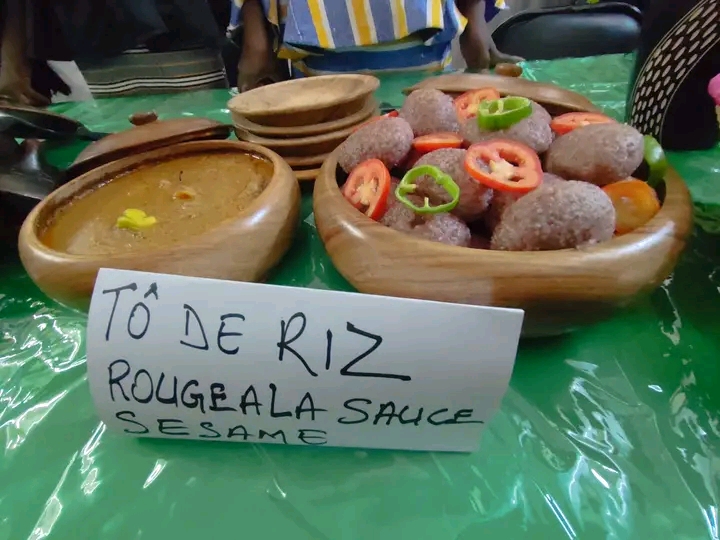 TÔ DE RIZ
ROUGEALA SAUCE
SESAME